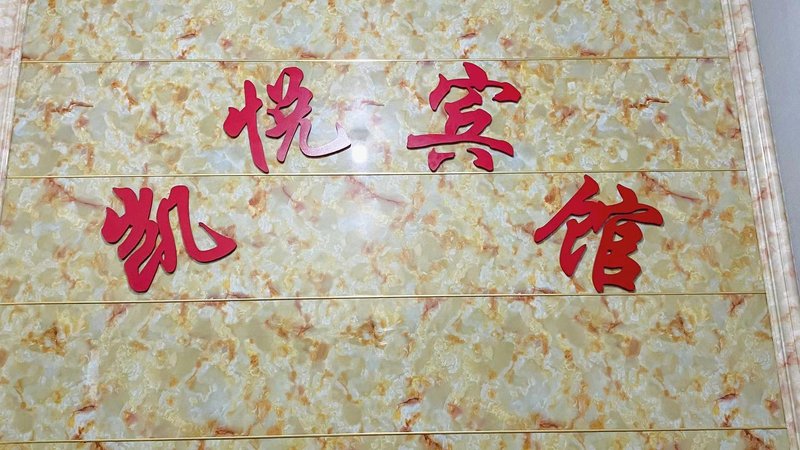 凯悦宾馆